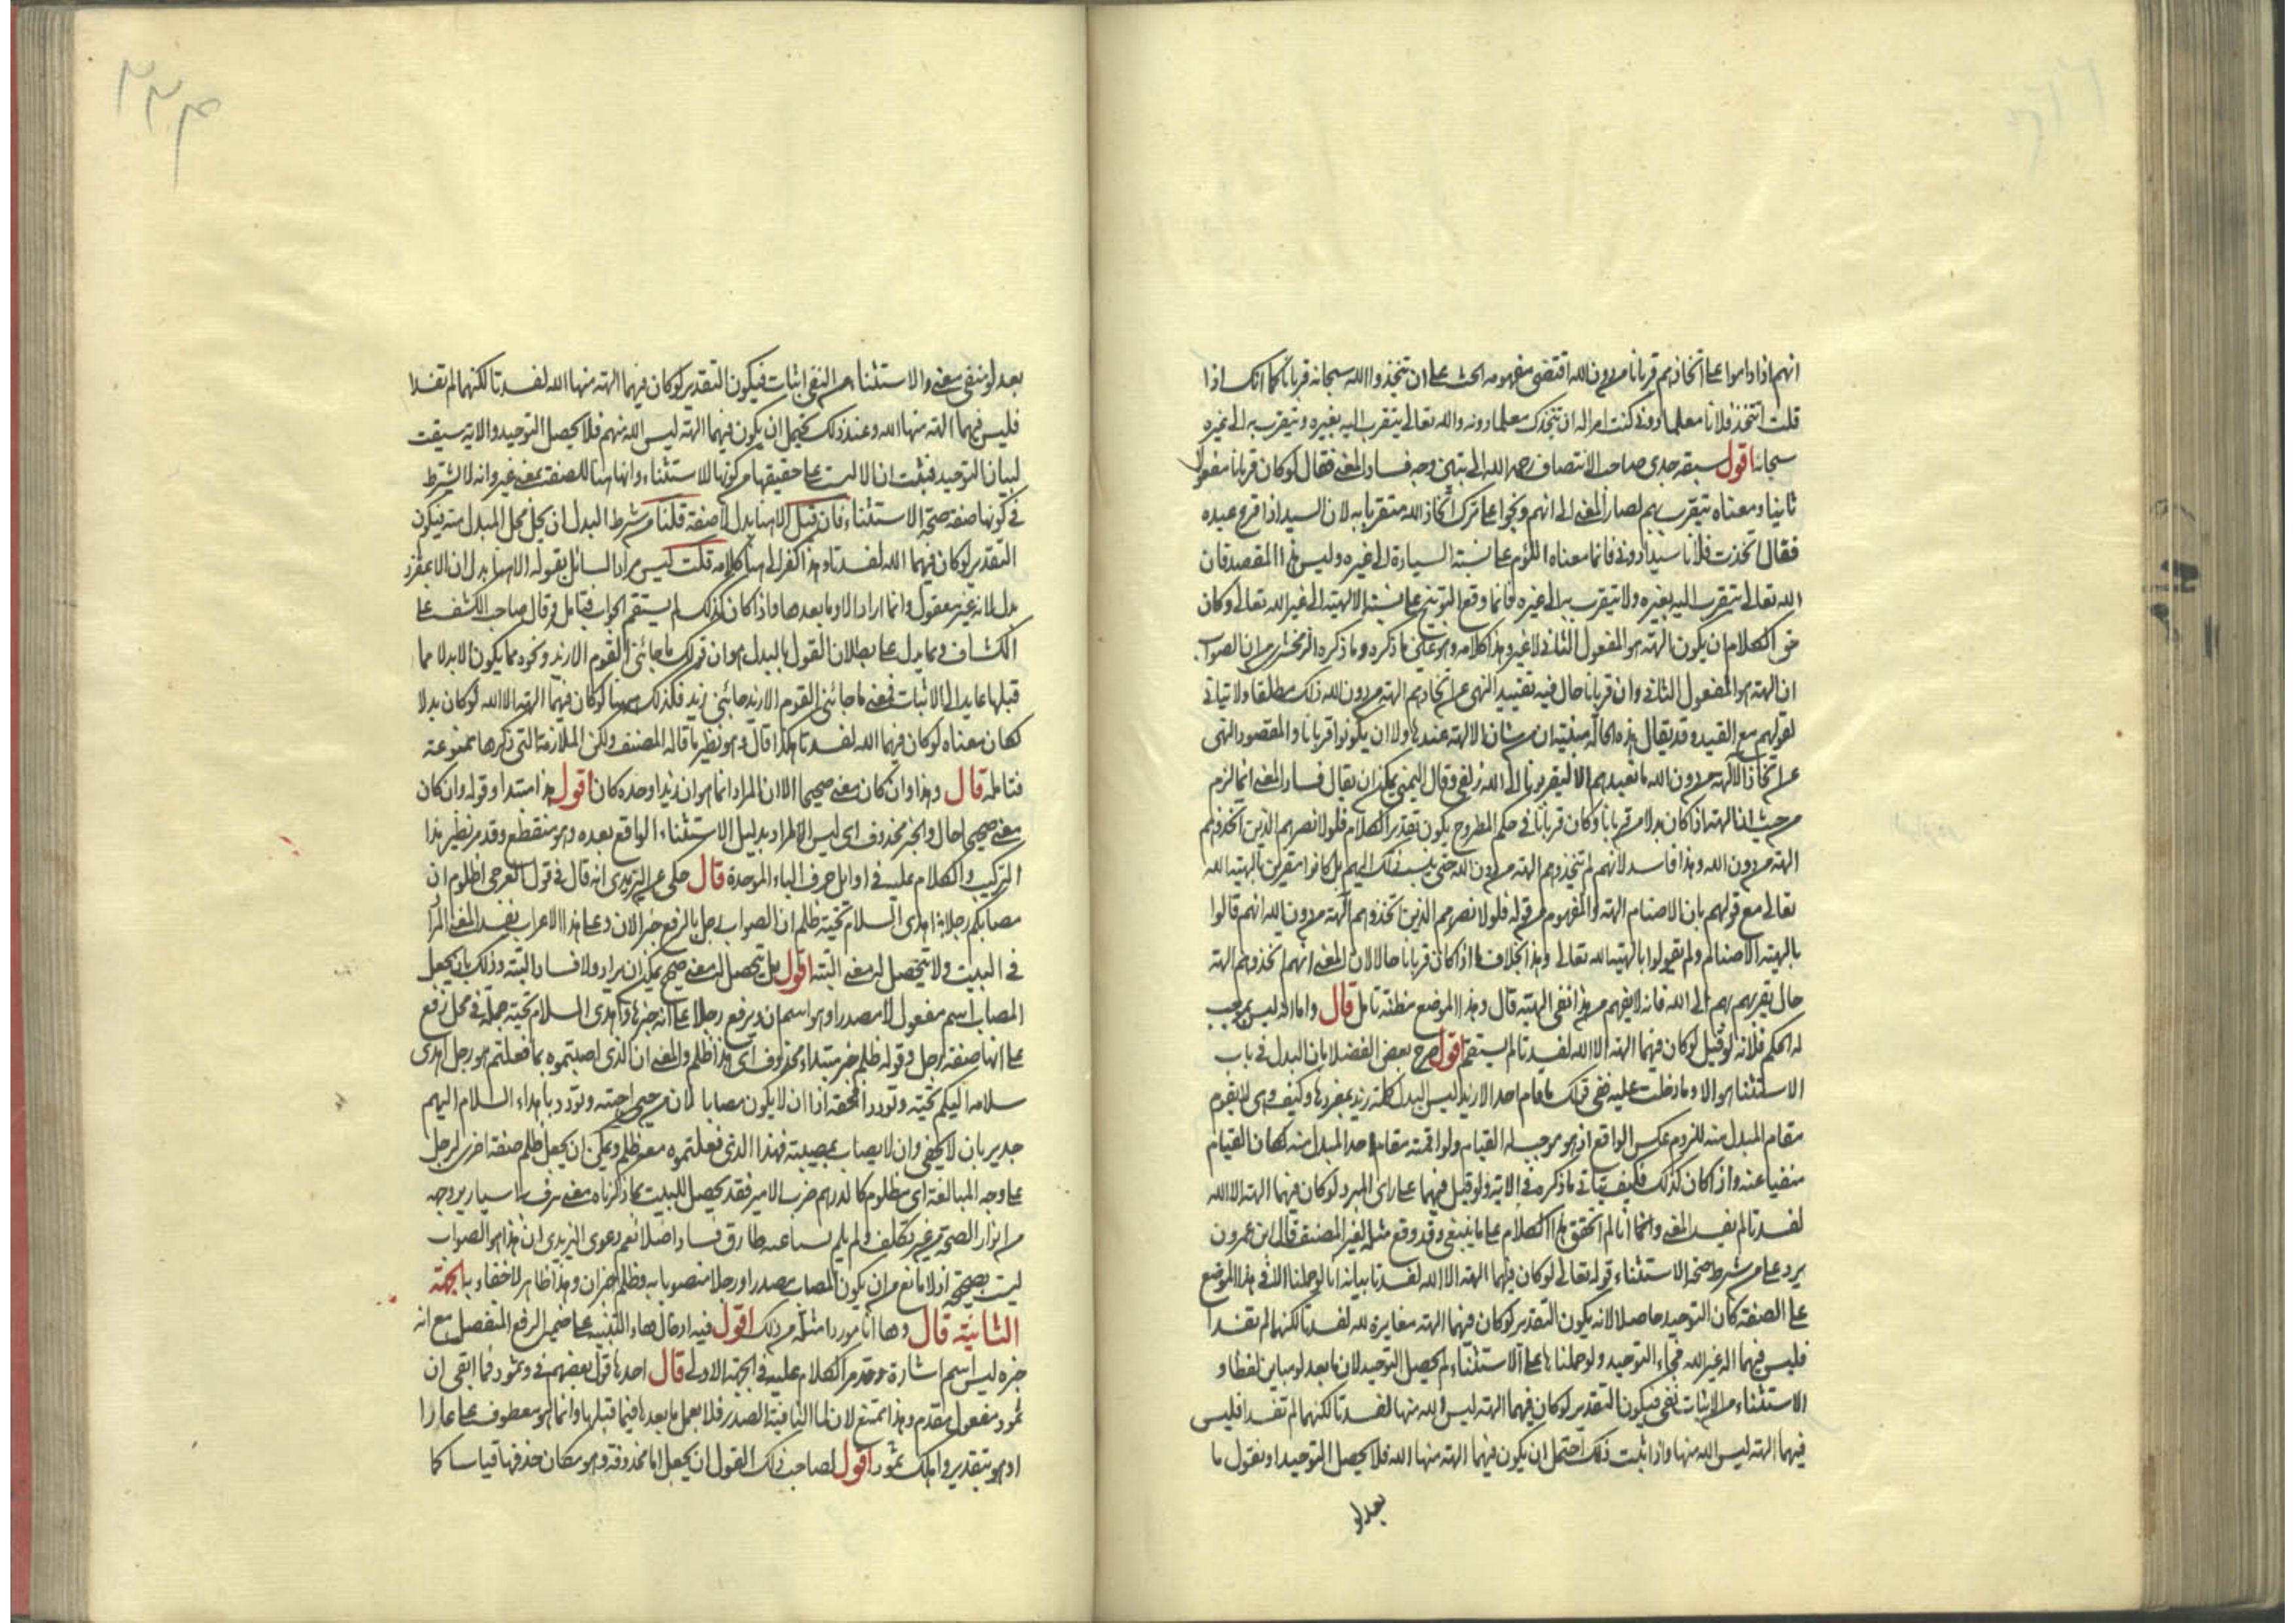 انهم اذا داموا على اتخاذهم قربانا من دون الله اقتضى مفهومه الحث على ان يتخذوا الله سبحانه قربانا كما انك اذا
قلت اتتخذ فلانا معلما دونى كنت امرا له ان يتخذك معلما دونه والله تعالى يتقرب اليه بغيره ولا يتقرب به الى غيره
سبحانه اقول سبقه جدى صاحب الانتصاف رحمه الله الى تبيين وجه فساد المعنى فقال لو كان قربانا مفعولا
ثانيا ومعناه يتقرب بهم لصار المعنى الى انهم وبخوا على ترك اتخاذ الله متقربا به لان السيد اذا قرع عبده
فقال اتخذت فلانا سيدا دونى فانما معناه اللوم على نسبة السيادة الى غيره وليس هذا المقصد فان
الله تعالى يتقرب اليه بغيره ولا يتقرب به الى غيره فانما وقع التوبيخ على نسبة الالهية الى غير الله تعالى وكان
حق الكلام ان يكون الهة هو المفعول الثانى لا غير وهذا كلامه وهو على ما ذكره وما ذكره الزمخشرى من ان الصواب
ان الهة هو المفعول الثانى وان قربانا حال فيه تقييد النهى عن اتخاذهم الهة من دون الله ذلك مطلقا ولا يتاتى
لقولهم مع القيد وقد يقال هذه الحالة مبنية ان من شان الالهة عندها ولا ان يكونوا قربانا والمقصود النهى
عن اتخاذ الالهة من دون الله ما نعبدهم الا ليقربونا الى الله زلفى وقال اليمنى يمكن ان يقال فساد المعنى انما لزم
من حيث ان الهة اذا كان بدلا من قربانا وكان قربانا فى حكم المطروح يكون تقدير الكلام فلولا نصرهم الذين اتخذوهم
الهة من دون الله وهذا فاسد لانهم لم يتخذوهم الهة من دون الله حتى ينسب ذلك اليهم بل كانوا مقرين بالهية الله
تعالى مع قولهم بان الاصنام الهة والمفهوم من قوله فلولا نصرهم الذين اتخذوهم الهة من دون الله انهم قالوا
بالهية الاصنام ولم يقولوا بالهية الله تعالى وهذا بخلاف ما اذا كان قربانا حالا لان المعنى انهم اتخذوهم الهة
حال تقربهم بهم الى الله فانه لا يفهم من هذا نفى الهيته قال وهذا الموضع مظنة تامل قال واما انه ليس بموجب
له الحكم فلانه لو قيل لو كان فيهما الهة الا الله لفسدتا لم يستقم اقول صرح بعض الفضلا بان البدل فى باب
الاستثنا هو الا وما دخلت عليه ففى قولك ما قام احد الا زيد ليس البدل كلمة زيد بمفردها وكيف وهى لا تقوم
مقام المبدل منه للزوم عكس الواقع اذ هو موجب له القيام ولو اقمته مقام احد المبدل منه لكان القيام
منفيا عنه واذا كان كذلك فكيف يتاتى ما ذكره فى الاية ولو قيل فيهما على راى المبرد لو كان فيهما الهة الا الله
لفسدتا لم يفسد المعنى وانما انا لم اتحقق هذا الكلام على ما ينبغى وقد وقع مثله لغير المصنف قال ابن عمرون
يرد على من شرط صحة الاستثناء قوله تعالى لو كان فيهما الهة الا الله لفسدتا بيانه انا لو حملنا الا فى هذا الموضع
على الصفة كان التوحيد حاصلا لانه يكون التقدير لو كان فيهما الهة مغايرة لله لفسدتا لكنهما لم تفسدا
فليس فيهما اله غير الله فجاء التوحيد ولو حملناها على الاستثناء لم يحصل التوحيد لان ما بعد لو مباين لفظا و
الاستثناء من الاثبات نفى فيكون التقدير لو كان فيهما الهة ليس الله منها لفسدتا لكنهما لم تفسدا فليس
فيهما الهة ليس الله منها واذا ثبت ذلك احتمل ان يكون فيهما الهة منها الله فلا يحصل التوحيد او نقول ما
بعد لو
٢٢٤
بعد لو منفى معنى والاستثناء من النفى اثبات فيكون التقدير لو كان فيهما الهة منها الله لفسدتا لكنهما لم تفسدا
فليس فيهما الهة منها الله وعند ذلك يحتمل ان يكون فيهما الهة ليس الله منهم فلا يحصل التوحيد والاية سيقت
لبيان التوحيد فثبت ان الا ليست على حقيقتها من كونها للاستثناء وانها هنا للصفة بمعنى غير وانه لا يشترط
فى كونها صفة صحة الاستثناء فان قيل الا هنا بدل لا صفة قلنا من شرط البدل ان يحل محل المبدل منه فيكون
التقدير لو كان فيهما الله لفسدتا وهذا كفر الى هنا كلامه قلت ليس مراد السائل بقوله الا هنا بدل ان الا بمفرده
بدل لانه غير معقول وانما اراد الا وما بعدها واذا كان كذلك لم يستقم الجواب فتامل وقال صاحب الكشف على
الكشاف ومما يدل على بطلان القول بالبدل هو ان قولك ما جائنى القوم الا زيد ونحوه مما يكون الا بدلا مما
قبلها عايد الى الاثبات فمعنى ما جائنى القوم الا زيد جائنى زيد فكذلك هنا لو كان فيهما الهة الا الله لو كان بدلا
لكان معناه لو كان فيهما الله لفسدتا هكذا قال وهو نظير ما قاله المصنف ولكن الملازمة التى ذكرها ممنوعة
فتامله قال وهذا وان كان معنى صحيحا الا ان المراد انما هو ان زيدا وحده كان اقول هذا مبتدا وقوله وان كان
معنى صحيحا حال والخبر محذوف اى ليس المراد بدليل الاستثناء الواقع بعده وهو منقطع وقد مر نظير هذا
التركيب والكلام عليه فى اوايل حرف الباء الموحدة قال حكى عن اليزيدى انه قال فى قول العرجى اظلوم ان
مصابكم رجلا اهدى السلام تحية ظلم ان الصواب رجل بالرفع خبرا لان وعلى هذا الاعراب يفسد المعنى المراد
فى البيت ولا يتحصل له معنى البتة اقول بل يتحصل له معنى صحيح يمكن ان يراد ولا فساد البتة وذلك بان يجعل
المصاب اسم مفعول لا مصدرا وهو اسم ان ويرفع رجلا على انه خبرها واهدى السلام تحية جملة فى محل رفع
على انها صفة لرجل وقوله ظلم خبر مبتداء محذوف اى هذا ظلم والمعنى ان الذى اصبتموه بما فعلتم هو رجل اهدى
سلامه اليكم تحية وتوددا فحقه اذا ان لا يكون مصابا لان من حيى احبته وتودد باهداء السلام اليهم
جدير بان لا يجفى وان لا يصاب بمصيبة فهذا الذى فعلتموه معه ظلم ويمكن ان يجعل ظلم صفة اخرى لرجل
على وجه المبالغة اى مظلوم كالدرهم ضرب الامير فقد يحصل للبيت بما ذكرناه معنى اسارير وجهه
من انوار الصحة من غير تكلف ولم يلم بساعده طارق فساد اصلا نعم دعوى اليزيدى ان هذا هو الصواب
ليست بصحيحة اذ لا مانع من ان يكون المصاب مصدرا ورجلا منصوبا به وظلم خبر ان وهذا ظاهر لا خفاء به الجهة
الثانية قال وها انا مورد امثلة من ذلك اقول فيه ادخال هاء التنبيه على ضمير الرفع المنفصل مع ان
خبره ليس اسم اشارة وقد مر الكلام عليه فى الجهة الاولى قال احدها قول بعضهم فى وثمود فما ابقى ان
ثمود مفعول مقدم وهذا ممتنع لان لما النافية الصدر فلا يعمل ما بعدها فيما قبلها وانما هو معطوف على عادا
او هو بتقدير واهلك ثمود اقول لصاحب ذلك القول ان يجعل اما محذوفة وهو مكان حذفها قياسا كما